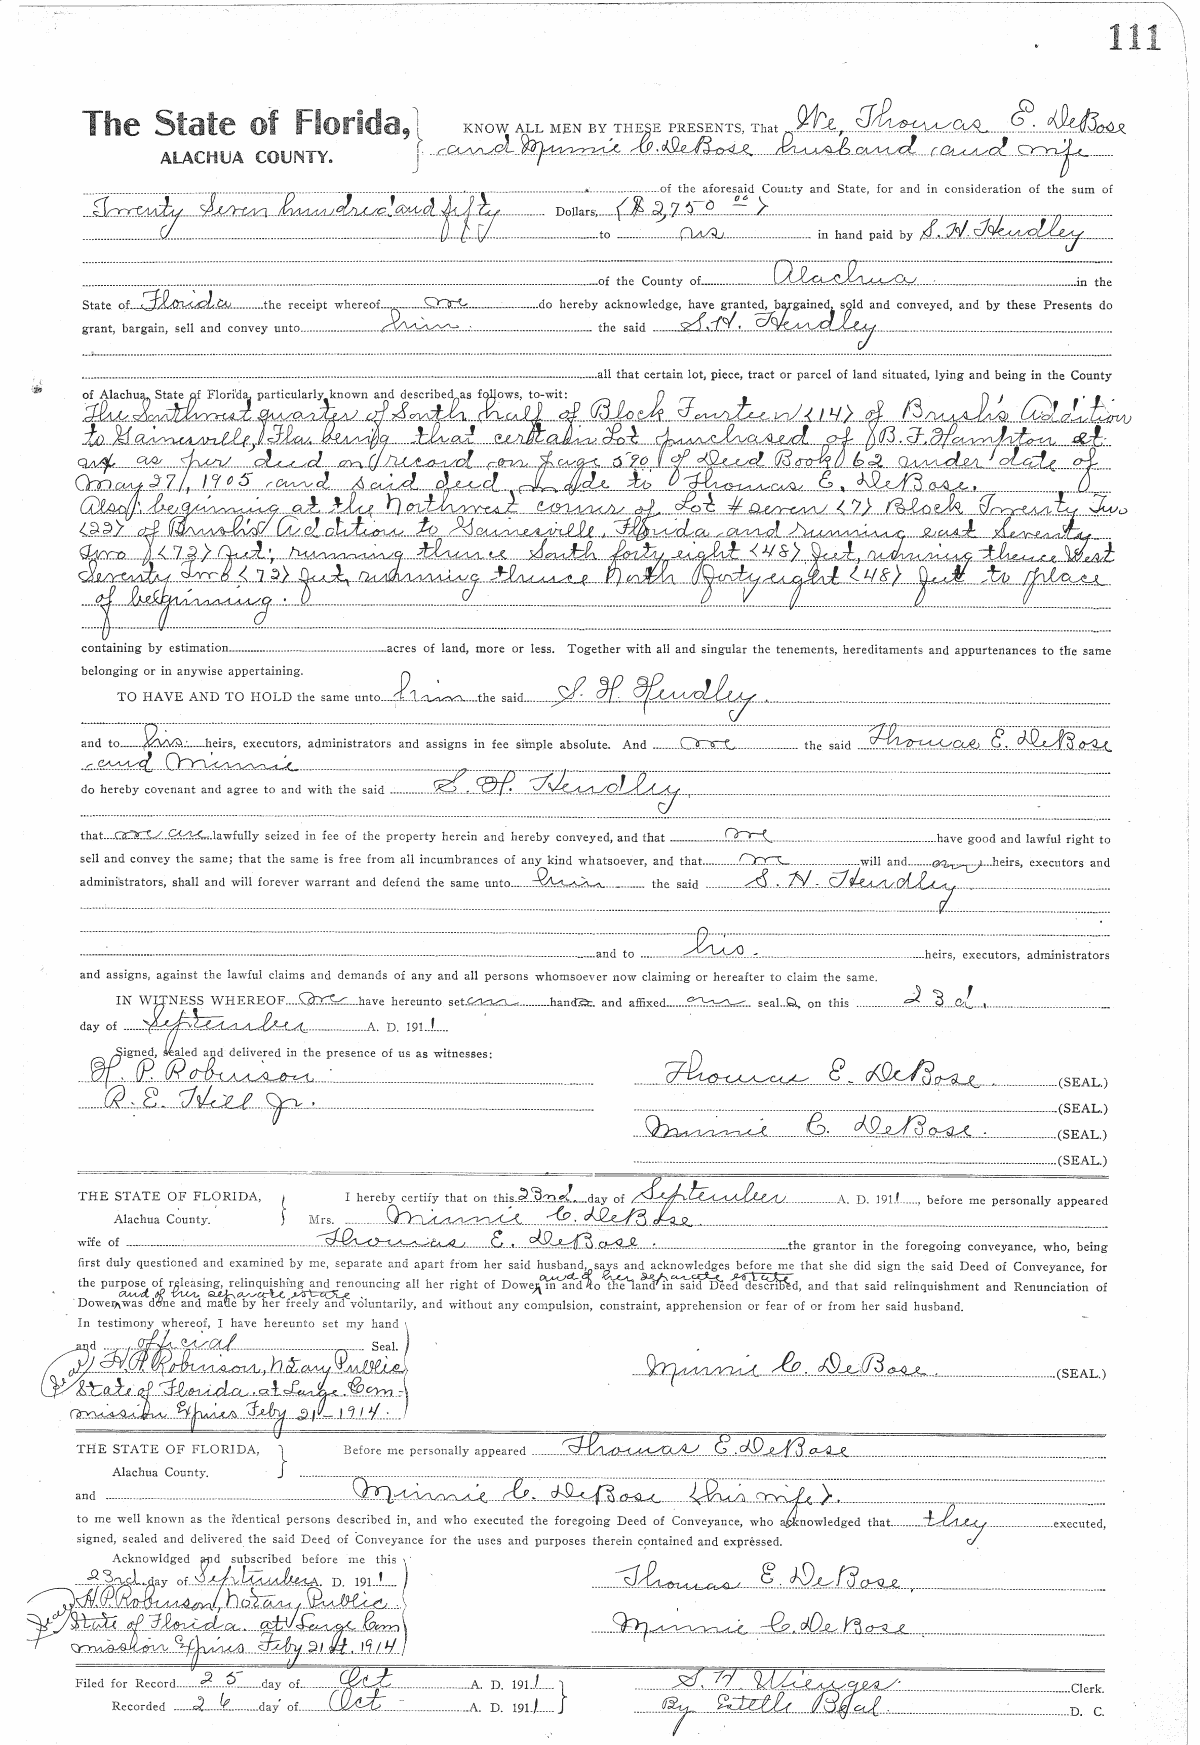 111
The State of Florida, KNOW ALL MEN BY THESE PRESENTS, That We, Thomas E. DeBose
ALACHUA COUNTY. and Minnie C. DeBose husband and wife
of the aforesaid County and State, for and in consideration of the sum of
Twenty Seven hundred and fifty Dollars, ($2,750 00)
to us in hand paid by S. H. Hendley
of the County of Alachua in the
State of Florida the receipt whereof we do hereby acknowledge, have granted, bargained, sold and conveyed, and by these Presents do
grant, bargain, sell and convey unto him the said S. H. Hendley
all that certain lot, piece, tract or parcel of land situated, lying and being in the County
of Alachua, State of Florida, particularly known and described as follows, to-wit:
The Southwest quarter of South half of Block Fourteen (14) of Brush's Addition
to Gainesville, Fla. being that certain Lot purchased of B. F. Hampton et
ux as per deed on record on page 590 of Deed Book 62 under date of
May 27, 1905 and said deed made to Thomas E. DeBose.
Also: beginning at the Northwest corner of Lot # seven (7) Block Twenty Two
(22) of Brush's Addition to Gainesville, Florida and running east Seventy
two (72) feet; running thence South forty eight (48) feet, running thence West
Seventy two (72) feet, running thence North forty eight (48) feet to place
of beginning.
containing by estimation acres of land, more or less. Together with all and singular the tenements, hereditaments and appurtenances to the same
belonging or in anywise appertaining.
TO HAVE AND TO HOLD the same unto him the said S. H. Hendley.
and to his heirs, executors, administrators and assigns in fee simple absolute. And we the said Thomas E. DeBose
and Minnie
do hereby covenant and agree to and with the said S. H. Hendley.
that we are lawfully seized in fee of the property herein and hereby conveyed, and that we have good and lawful right to
sell and convey the same; that the same is free from all incumbrances of any kind whatsoever, and that we will and our heirs, executors and
administrators, shall and will forever warrant and defend the same unto him the said S. H. Hendley
and to his. heirs, executors, administrators
and assigns, against the lawful claims and demands of any and all persons whomsoever now claiming or hereafter to claim the same.
IN WITNESS WHEREOF we have hereunto set our hands and affixed our seals, on this 23d.
day of September A. D. 1911.
Signed, sealed and delivered in the presence of us as witnesses:
H. P. Robinson Thomas E. DeBose. (SEAL.)
R. E. Hill Jr. (SEAL.)
Minnie C. DeBose. (SEAL.)
(SEAL.)
THE STATE OF FLORIDA, I hereby certify that on this 23nd. day of September A. D. 1911, before me personally appeared
Alachua County. Mrs. Minnie C. DeBose
wife of Thomas E. DeBose. the grantor in the foregoing conveyance, who, being
first duly questioned and examined by me, separate and apart from her said husband, says and acknowledges before me that she did sign the said Deed of Conveyance, for
and of her separate estate
the purpose of releasing, relinquishing and renouncing all her right of Dower in and to the land in said Deed described, and that said relinquishment and Renunciation of
and of her separate estate
Dower was done and made by her freely and voluntarily, and without any compulsion, constraint, apprehension or fear of or from her said husband.
In testimony whereof, I have hereunto set my hand
and official Seal.
(Seal) H. P. Robinson, Notary Public Minnie C. DeBose. (SEAL)
State of Florida. at Large Com-
mission Expires Feby 21-1914.
THE STATE OF FLORIDA, Before me personally appeared Thomas E. DeBose
Alachua County.
and Minnie C. DeBose (his wife).
to me well known as the identical persons described in, and who executed the foregoing Deed of Conveyance, who acknowledged that they executed,
signed, sealed and delivered the said Deed of Conveyance for the uses and purposes therein contained and expressed.
Acknowldged and subscribed before me this
23rd day of September A. D. 1911 Thomas E. DeBose.
H. P. Robinson, Notary Public
(Seal) State of Florida. at Large Com Minnie C. DeBose
mission Expires Feby 21st. 1914
Filed for Record 25 day of Oct A. D. 1911 S. H. Wienges. Clerk.
Recorded 26 day of Oct A. D. 1911 By Estelle Beal. D. C.